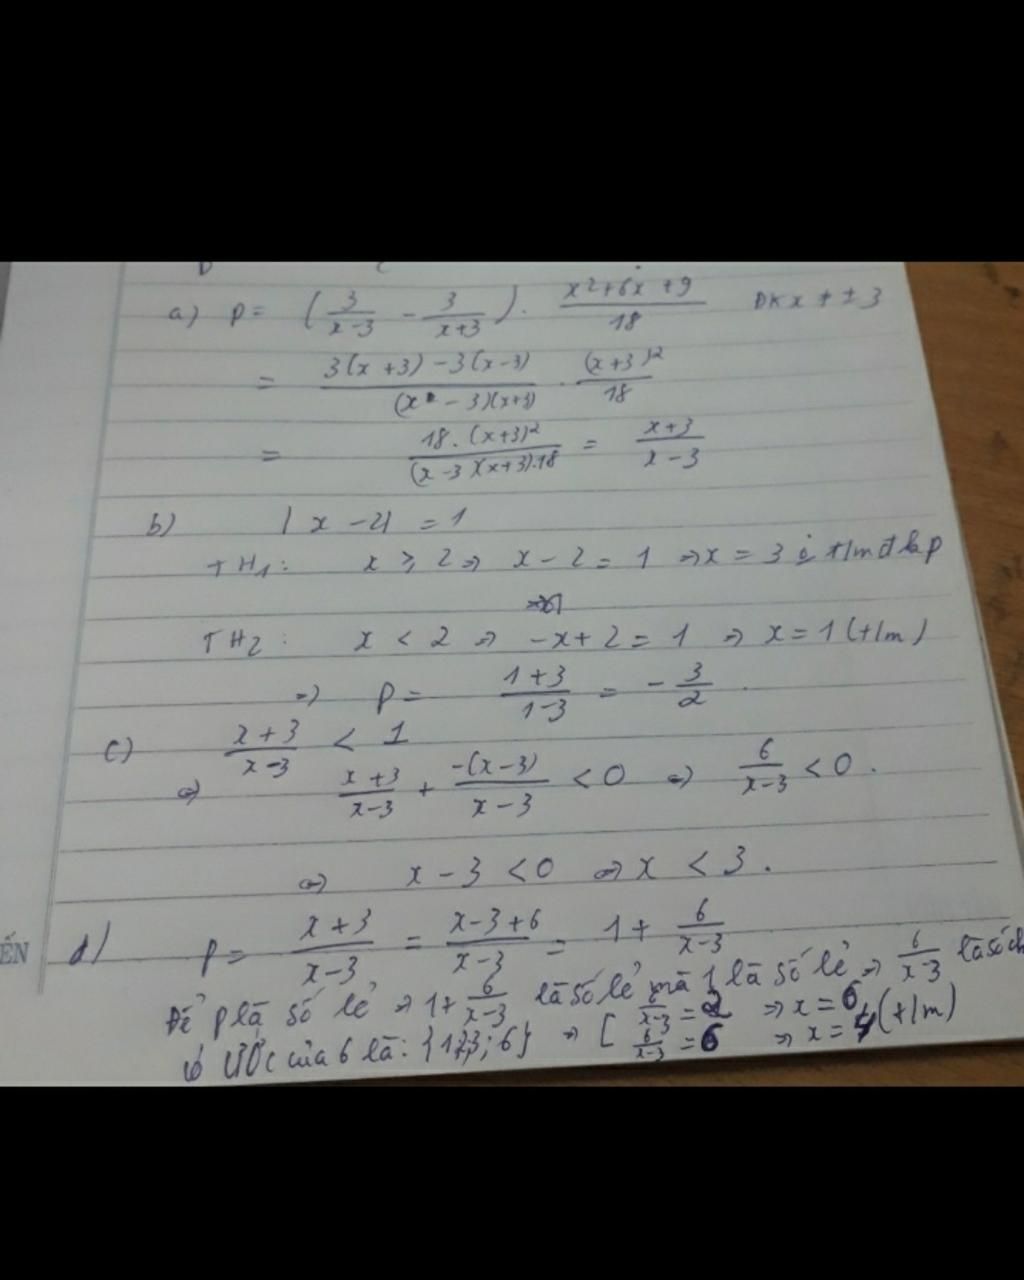 a) P = ( 3/(x-3) - 3/(x+3) ) . (x²+6x+9)/18 ĐK x ≠ ± 3
= (3(x+3) - 3(x-3))/((x - 3)(x+3)) . (x+3)²/18
= (18.(x+3)²)/((x-3)(x+3).18) = (x+3)/(x-3)
b) |x - 2| = 1
TH1: x ≥ 2 => x - 2 = 1 => x = 3 t/m
TH2: x < 2 => -x + 2 = 1 => x = 1 (t/m)
=> P = (1+3)/(1-3) = - 3/2
c) (x+3)/(x-3) < 1
<=> (x+3)/(x-3) + (-(x-3))/(x-3) < 0 <=> 6/(x-3) < 0.
<=> x - 3 < 0 <=> x < 3.
ẾN
d) P = (x+3)/(x-3) = (x-3+6)/(x-3) = 1 + 6/(x-3)
Để P là số lẻ => 1 + 6/(x-3) là số lẻ mà 1 là số lẻ => 6/(x-3) là số ch
Ước của 6 là: {1;2;3;6} => [ 6/(x-3) = 2 => x = 6
6/(x-3) = 6 => x = 4 (t/m)